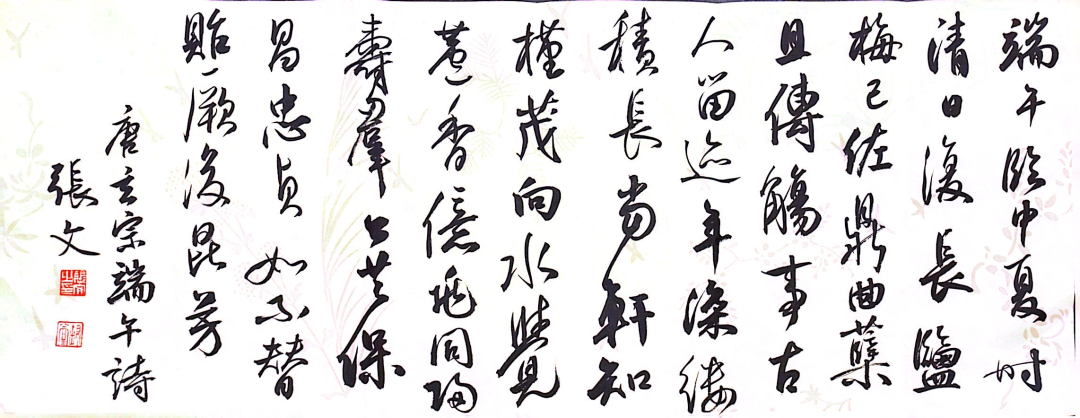 端午臨中夏時
清日復長鹽
梅已佐鼎曲蘖
且傳觴事古
人留迹年深縷
積長當軒知
槿茂向水覺
蘆香億兆同歸
壽羣公共保
昌忠貞如不替
貽厥後昆芳
唐玄宗端午詩
張文